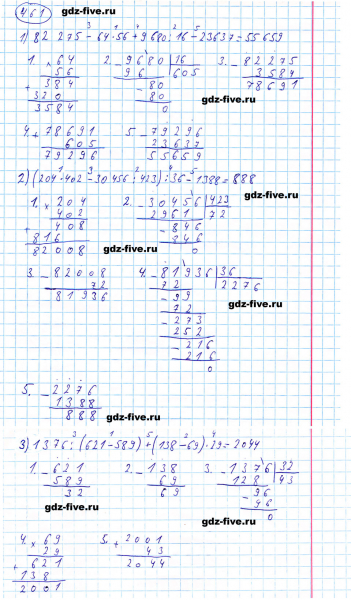 461 gdz-five.ru
1) 82 275 - 64 · 56 + 9 680 : 16 - 23637 = 55659
1. × 64 2. - 9680 | 16 3. - 82275
56 96 605 3584
+ 384 - 80 78691
320 80
3584 0
gdz-five.ru
4. + 78691 5. - 79296
605 23637
79296 55659
2) (204 · 402 - 30456 : 423) : 36 - 1388 = 888
gdz-five.ru
1. × 204 2. - 30456 | 423
402 2961 72
+ 408 - 846
816 846
82008 0
gdz-five.ru
3. - 82008 4. - 81936 | 36
72 72 2276
81936 - 99
72
- 273
252
- 216
216
0
gdz-five.ru
5. - 2276
1388
888
gdz-five.ru
3) 1376 : (621 - 589) + (138 - 69) · 29 = 2044
1. - 621 2. - 138 3. - 1376 | 32
589 69 128 43
32 69 - 96
96
0
gdz-five.ru
gdz-five.ru
4. × 69 5. + 2001
29 43
+ 621 2044
138
2001
gdz-five.ru